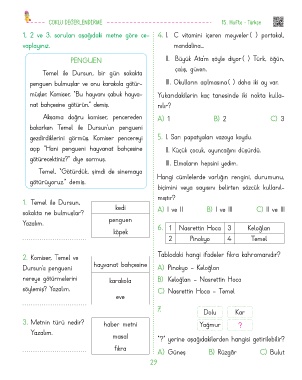 ÇOKLU DEĞERLENDİRME
15. Hafta - Türkçe
1, 2 ve 3. soruları aşağıdaki metne göre ce-
vaplayınız.
PENGUEN
Temel ile Dursun, bir gün sokakta
penguen bulmuşlar ve onu karakola götür-
müşler. Komiser, "Bu hayvanı çabuk hayva-
nat bahçesine götürün." demiş.
Akşama doğru komiser, pencereden
bakarken Temel ile Dursun'un pengueni
gezdirdiklerini görmüş. Komiser pencereyi
açıp "Hani pengueni hayvanat bahçesine
götürecektiniz?" diye sormuş.
Temel, "Götürdük, şimdi de sinemaya
götürüyoruz." demiş.
1. Temel ile Dursun,
sokakta ne bulmuşlar?
Yazalım.
kedi
penguen
köpek
2. Komiser, Temel ve
Dursun'a pengueni
nereye götürmelerini
söylemiş? Yazalım.
hayvanat bahçesine
karakola
eve
3. Metnin türü nedir?
Yazalım.
haber metni
masal
fıkra
4. I. C vitamini içeren meyveler( ) portakal,
mandalina...
II. Büyük Ata'm şöyle diyor( ) Türk, öğün,
çalış, güven.
III. Okulların açılmasına( ) daha iki ay var.
Yukarıdakilerin kaç tanesinde iki nokta kulla-
nılır?
A) 1 B) 2 C) 3
5. I. Sarı papatyaları vazoya koydu.
II. Küçük çocuk, oyuncağını düşürdü.
III. Elmaların hepsini yedim.
Hangi cümlelerde varlığın rengini, durumunu,
biçimini veya sayısını belirten sözcük kullanıl-
mıştır?
A) I ve II B) I ve III C) II ve III
6. 1 Nasrettin Hoca 3 Keloğlan
2 Pinokyo 4 Temel
Tablodaki hangi ifadeler fıkra kahramanıdır?
A) Pinokyo - Keloğlan
B) Keloğlan - Nasrettin Hoca
C) Nasrettin Hoca - Temel
7.
Dolu Kar
Yağmur ?
"?" yerine aşağıdakilerden hangisi getirilebilir?
A) Güneş B) Rüzgâr C) Bulut
29